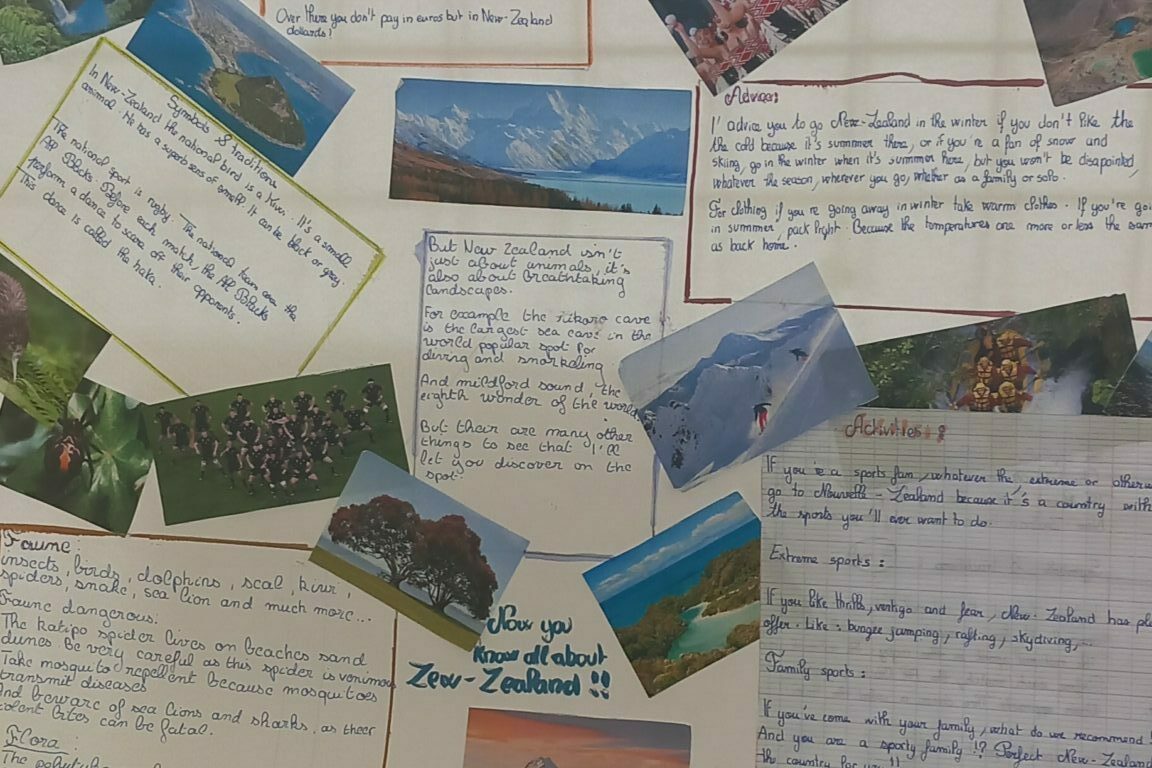 Over there you don't pay in euros but in New-Zealand
dollards!
Symbols & traditions
In New-Zealand the national bird is a Kiwi. It's a small
animal. He has a superb sens of smell. It can be black or gray.
The national sport is rugby. The national team are the
All Blacks. Before each match, the All Blacks
perform a dance to scare off their opponents.
This dance is called the haka.
Advices
I' advice you to go New-Zealand in the winter if you don't like the
the cold because it's summmer there, or if you're a fan of snow and
skiing, go in the winter when it's summer here, but you won't be disapointed,
whatever the season, wherever you go, whether as a family or solo.
For clothing if you're going away in winter take warm clothes. If you're goi
in summmer, pack light. Because the temperatures are more or less the sam
as back home.
But New Zealand isn't
just about animals, it's
also about breathtaking
landscapes.
For example the rikoro cave
is the largest sea cave in the
world popular spot for
diving and snorkeling
And mildford sound, the
eighth wonder of the world
But their are many other
things to see that I'll
let you discover on the
spot.
Activities :
If you're a sports fan, whatever the, extreme or otherw
go to Nouvelle-Zealand because it's a country with
the sports you'll ever want to do.
Extreme sports :
If you like thrills, vertigo and fear, New-Zealand has pl
offer. Like : bungee jumping, rafting, skydiving, ...
Family sports :
If you've come with your family, what do we recommend?
And you are a sporty family !? Perfect New-Zealand
the country for you!!
Faune
insects, birds, dolphins, seal, kiwi,
spiders, snake, sea lion and much more...
Faune dangerous:
The katipo spider lives on beaches sand
dunes. Be very careful as this spider is venimou
Take mosquito repellent because mosquitoes
transmit diseases
And beware of sea lions and sharks, as theer
olent bites can be fatal.
Flora :
The
Now you
know all about
Zew-Zealand !!